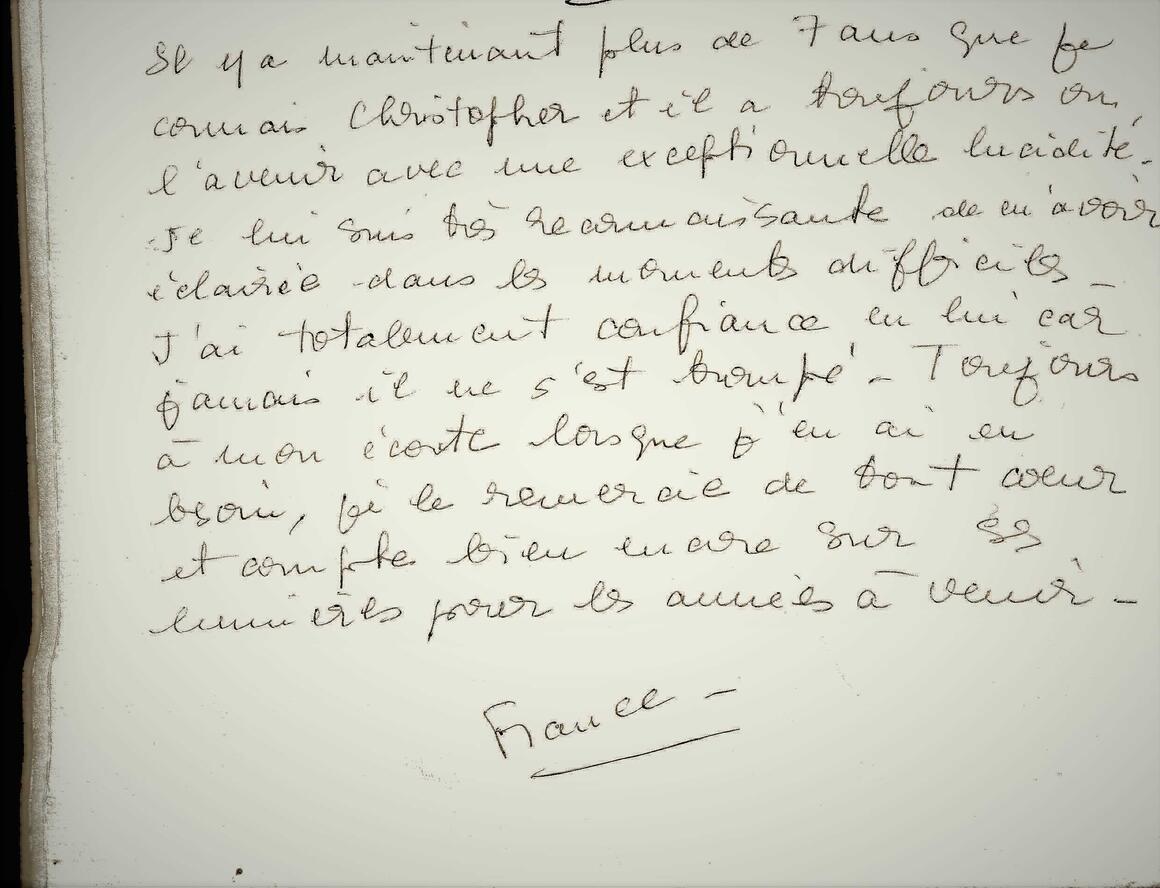 Il y a maintenant plus de 7 ans que je
connais Christopher et il a toujours vu
l'avenir avec une exceptionnelle lucidité.
Je lui suis très reconnaissante de m'avoir
éclairée dans les moments difficiles_
J'ai totalement confiance en lui car
jamais il ne s'est trompé_ Toujours
à mon écoute lorsque j'en ai eu
besoin, je le remercie de tout cœur
et compte bien encore sur ses
lumières pour les années à venir_
France_